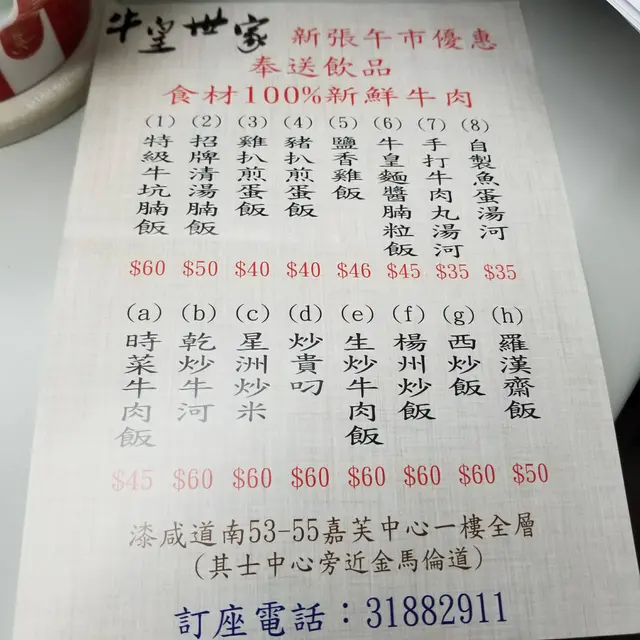 牛皇世家 新張午市優惠
奉送飲品
食材100%新鮮牛肉
(1) (2) (3) (4) (5) (6) (7) (8)
特級牛坑腩飯
招牌清湯腩飯
雞扒煎蛋飯
豬扒煎蛋飯
鹽香雞飯
牛皇麵醬腩粒飯
手打牛肉丸湯河
自製魚蛋湯河
$60 $50 $40 $40 $46 $45 $35 $35
(a) (b) (c) (d) (e) (f) (g) (h)
時菜牛肉飯
乾炒牛河
星洲炒米
炒貴叼
生炒牛肉飯
楊州炒飯
西炒飯
羅漢齋飯
$45 $60 $60 $60 $60 $60 $60 $50
漆咸道南53-55嘉芙中心一樓全層
(其士中心旁近金馬倫道)
訂座電話：31882911